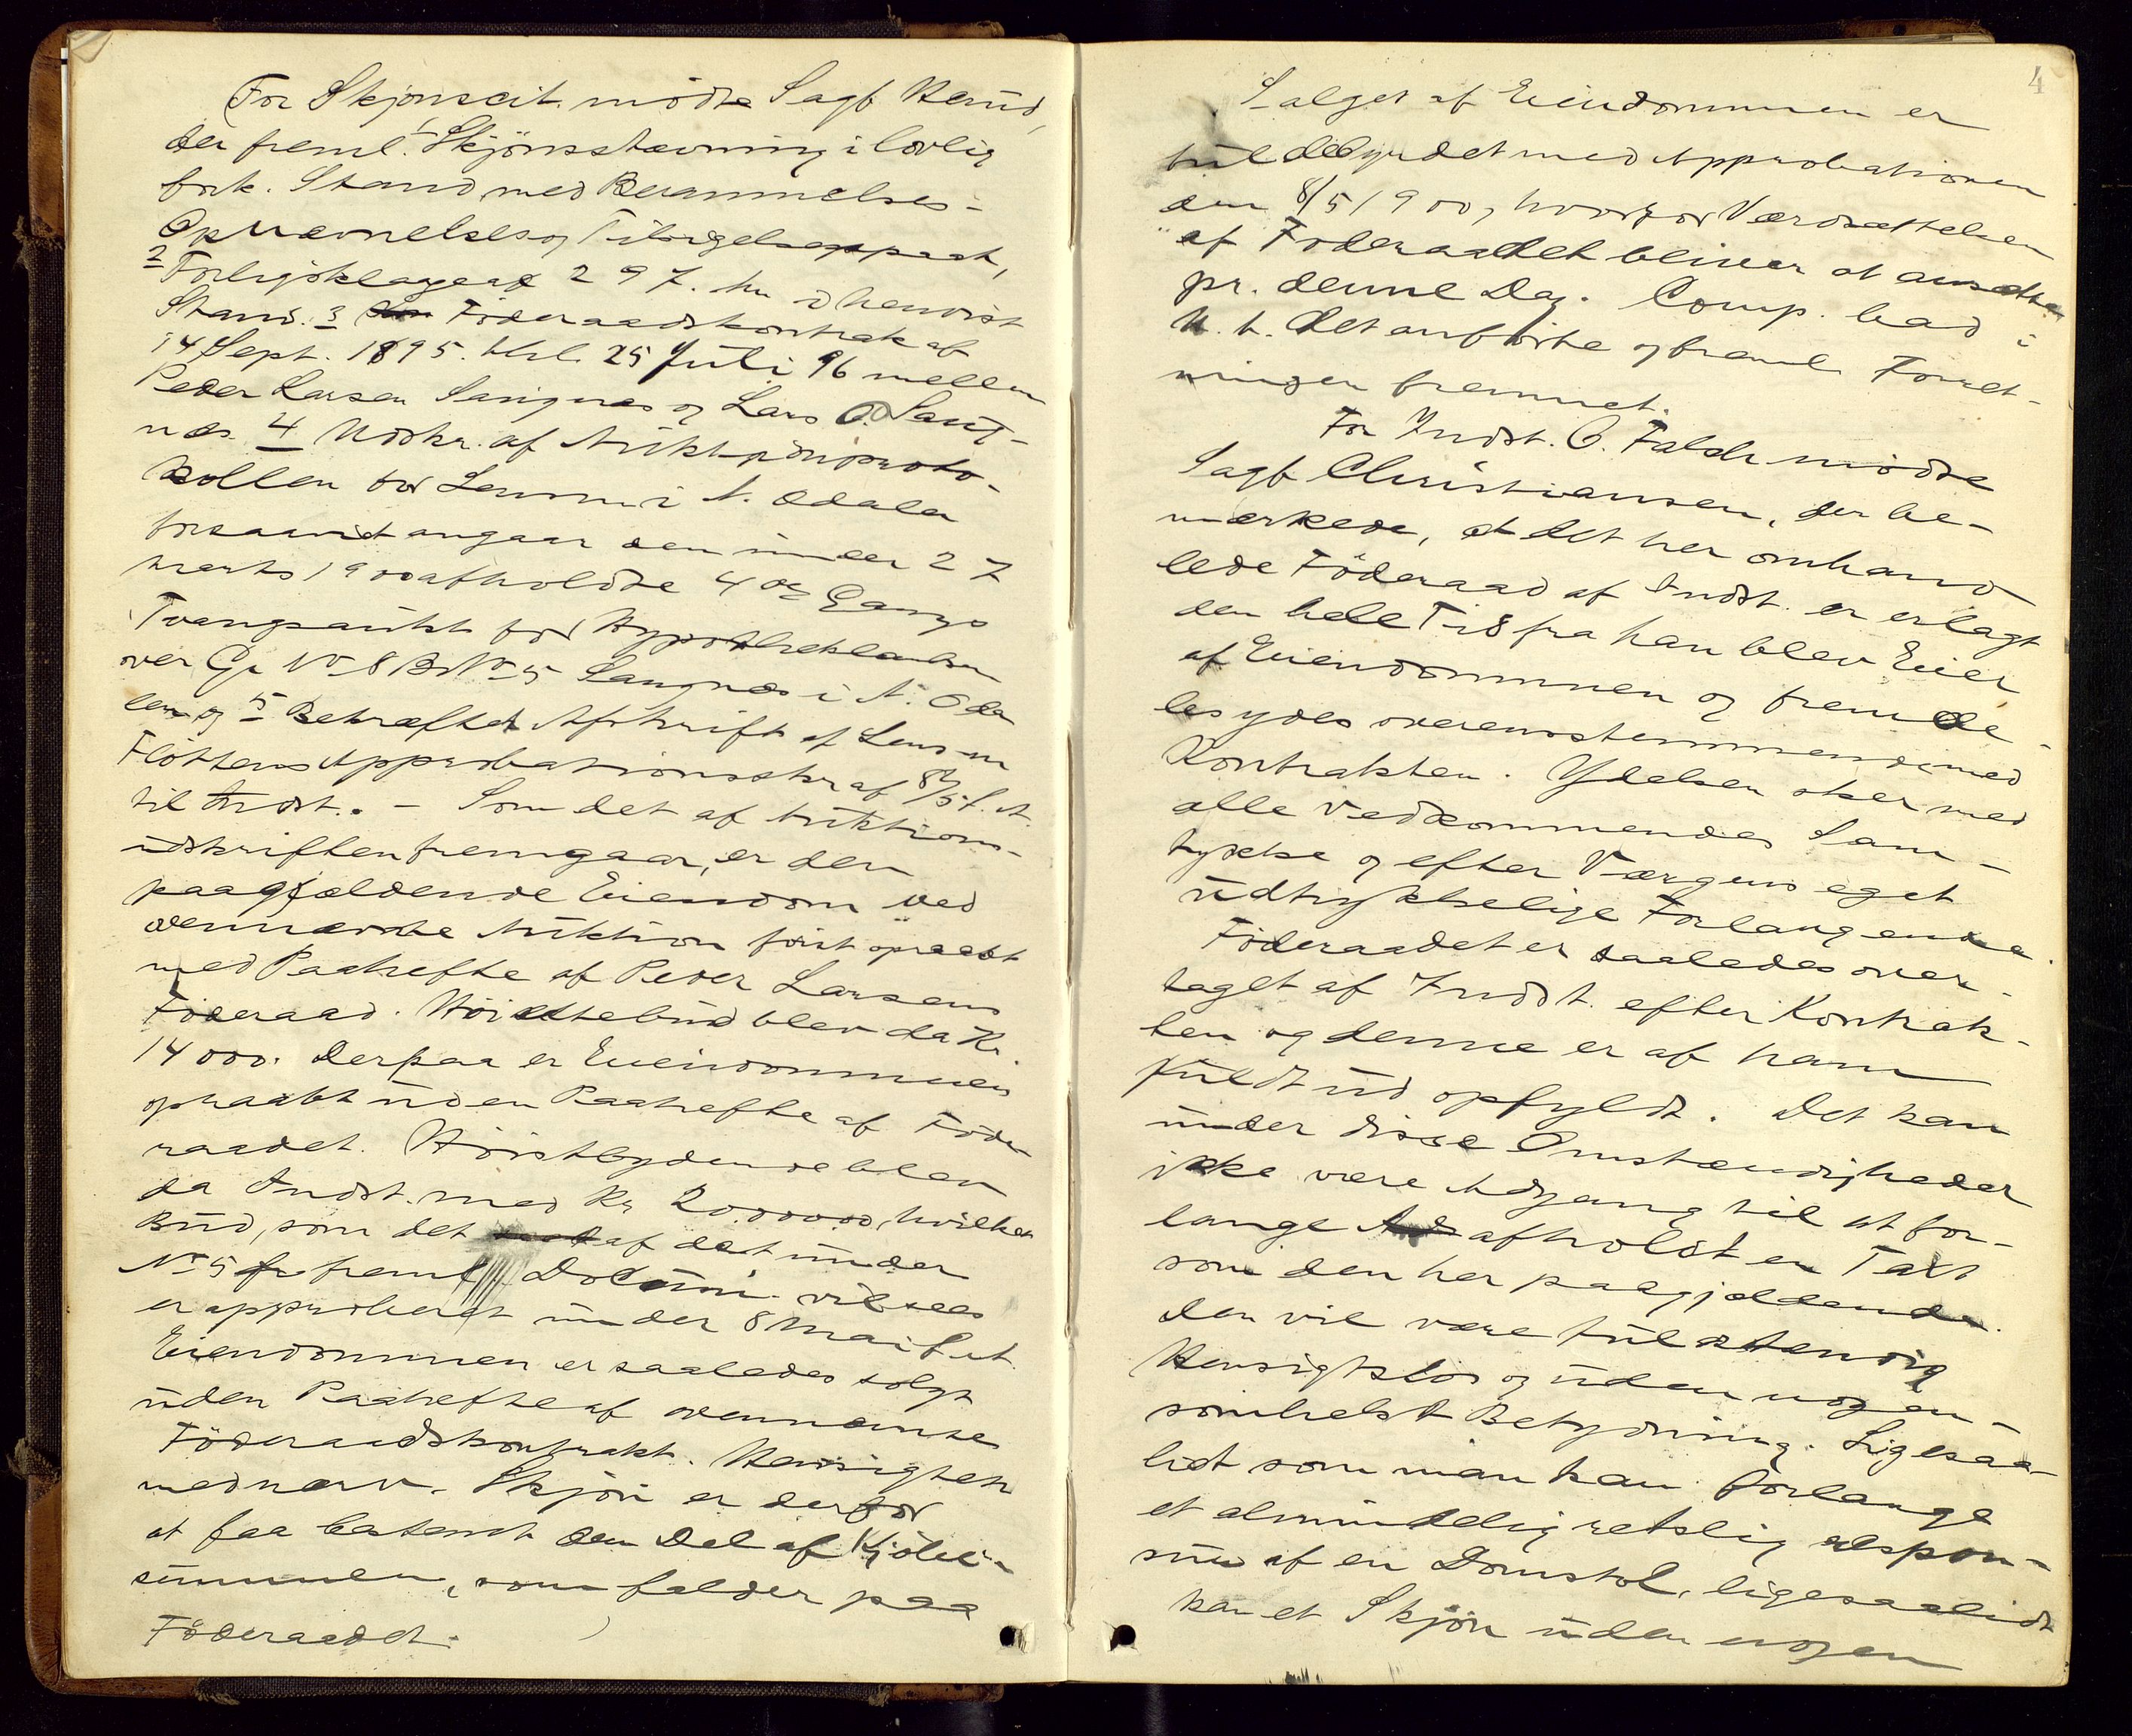 For Skjønscit. mødte Sagf. Rand,
der freml. 1 Skjønsstævning i lovlig
fork. Stand med Berammelses-
Opnævnelses og Tilsigelsespaat,
2 Forligsklage af 29 f. M. i henvist
Stand. 3 Föderaadskontrakt af
14 Sept. 1895. thl. 25 Juli 96 mellem
Peder Larsen Sangnæs og Lars O. Sang-
næs. 4 Udskr. af Auktionsproto-
kollen for Lensm. i N. Odalen
forsaavidt angaar den under 27
Marts 1900 afholdte 4de Gangs
Tvangsauktion for Hypothekbanken
over Gr No 8 Br No 5 Sangnæs i N. Oda-
len og 5 Bekræftet Afskrift af Lensm.
Flöttens Approbationsskr. af 8/5 d. A.
til Indst. - Som det af Auktions-
udskriften fremgaar, er den
paagjældende Eiendom ved
ovennævnte Auktion først opraabt
med Paahefte af Peder Larsens
Föderaad. Höiestebud blev da Kr.
14000. Derpaa er Eiendommen
opraabt uden Paahefte af Föde-
raadet. Höistbydende blev
da Indst. med Kr 20.000.00, hvilket
Bud, som det af det under
No 5 freml. Dokum. vil sees
er approberet under 8 Mai d. A.
Eiendommen er saaledes solgt
uden Paahefte af ovennævnte
Föderaadskontrakt. Hensigten
med nærv. Skjön er derfor
at faa bestemt den Del af Kjöbe-
summen, som falder paa
Föderaadet.
4
Salget af Eiendommen er
fuldbyrdet med Approbationen
den 8/5 1900, hvorfor Værdsættelsen
af Föderaadet bliver at ansætte
pr. denne Dag. Comp. bad i
H. t. det anförte og freml. Forret-
ningen fremmet.
For Indst. O. Falch mödte
Sagf. Christiansen, der be-
mærkede, at det her omhand-
lede Föderaad af Indst. er erlagt
den hele Tid fra han blev Eier
af Eiendommen og fremde-
les ydes overensstemmende med
Kontrakten. Ydelsen sker med
alle Vedkommendes Sam-
tykke og efter Værgens eget
udtrykkelige Forlangende.
Föderaadet er saaledes over-
taget af Indst. efter Kontrak-
ten og denne er af ham
fuldt ud opfyldt. Det kan
under disse Omstændigheder
ikke være Adgang til at for-
lange afholdt en Taxt
som den her paagjældende.
Den vil være fuldstændig
Hensigtslös og uden nogen-
somhelst Betydning. Ligesaa-
lidt som man kan forlange
et almindelig retslig respon-
sum af en Domstol, ligesaalidt
kan et Skjön uden nogen